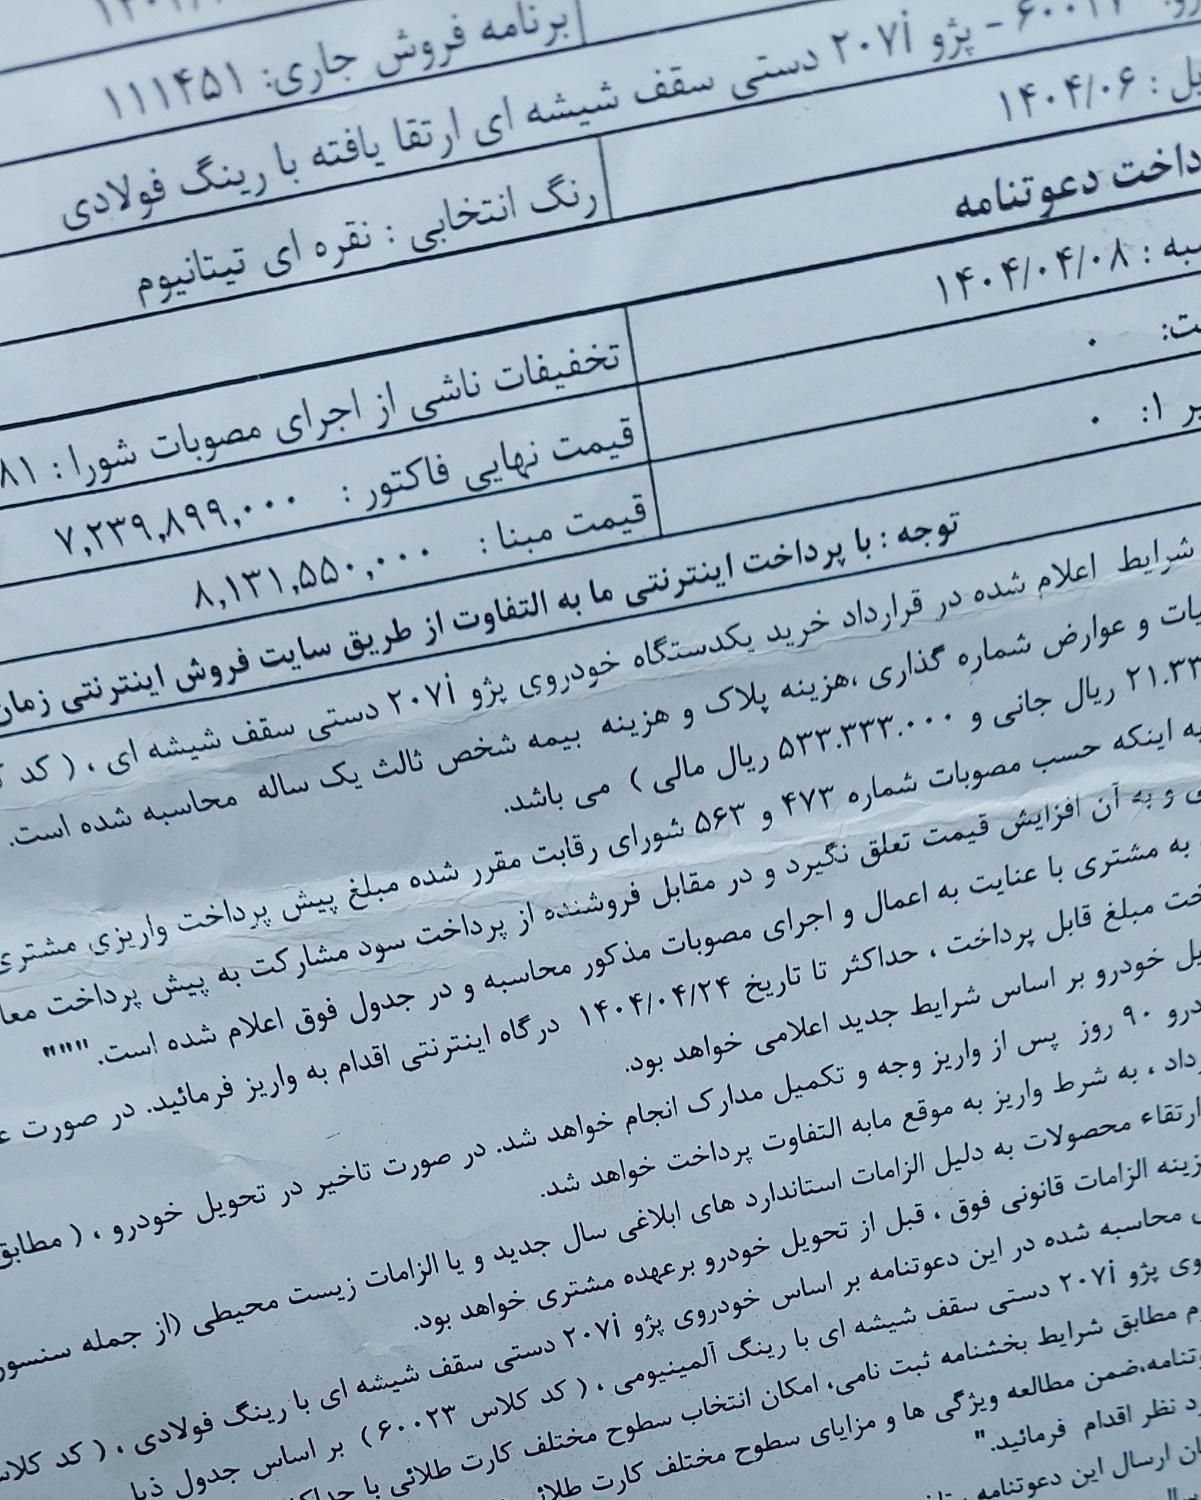 برنامه فروش جاری: ۱۱۱۴۵۱
پژو ۲۰۷i دستی سقف شیشه ای ارتقا یافته با رینگ فولادی
: ۱۴۰۴/۰۶
رنگ انتخابی : نقره ای تیتانیوم
دعوتنامه
: ۱۴۰۴/۰۴/۰۸
تخفیفات ناشی از اجرای مصوبات شورا :
۰
قیمت نهایی فاکتور : ۷,۲۳۹,۸۹۹,۰۰۰
۱: ۰
قیمت مبنا : ۸,۱۳۱,۵۵۰,۰۰۰
توجه : با پرداخت اینترنتی ما به التفاوت از طریق سایت فروش اینترنتی
شرایط اعلام شده در قرارداد خرید یکدستگاه خودروی پژو ۲۰۷i دستی سقف شیشه ای ، ( کد
و عوارض شماره گذاری ،هزینه پلاک و هزینه بیمه شخص ثالث یک ساله محاسبه شده است.
ریال جانی و ۵۳۳.۳۳۳.۰۰۰ ریال مالی ) می باشد.
اینکه حسب مصوبات شماره ۴۷۳ و ۵۶۳ شورای رقابت مقرر شده مبلغ پیش پرداخت واریزی مشتری
و به آن افزایش قیمت تعلق نگیرد و در مقابل فروشنده از پرداخت سود مشارکت به پیش پرداخت
به مشتری با عنایت به اعمال و اجرای مصوبات مذکور محاسبه و در جدول فوق اعلام شده است. """
مبلغ قابل پرداخت ، حداکثر تا تاریخ ۱۴۰۴/۰۴/۲۴ درگاه اینترنتی اقدام به واریز فرمائید. در صورت
خودرو بر اساس شرایط جدید اعلامی خواهد بود.
۹۰ روز پس از واریز وجه و تکمیل مدارک انجام خواهد شد. در صورت تاخیر در تحویل خودرو ، ( مطابق
، به شرط واریز به موقع مابه التفاوت پرداخت خواهد شد.
ارتقاء محصولات به دلیل الزامات استاندارد های ابلاغی سال جدید و یا الزامات زیست محیطی (از جمله
الزامات قانونی فوق ، قبل از تحویل خودرو برعهده مشتری خواهد بود.
محاسبه شده در این دعوتنامه بر اساس خودروی پژو ۲۰۷i دستی سقف شیشه ای با رینگ فولادی ، ( کد
پژو ۲۰۷i دستی سقف شیشه ای با رینگ آلمینیومی ، ( کد کلاس ۶۰۰۲۳ ) بر اساس جدول ذیل
مطابق شرایط بخشنامه ثبت نامی، امکان انتخاب سطوح مختلف کارت طلائی با
ضمن مطالعه ویژگی ها و مزایای سطوح مختلف کارت
نظر اقدام فرمائید."
ارسال این دعوتنامه